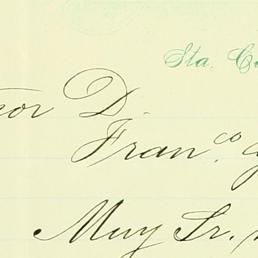 Sta. C
or D.
Franco. G
Muy Sr.